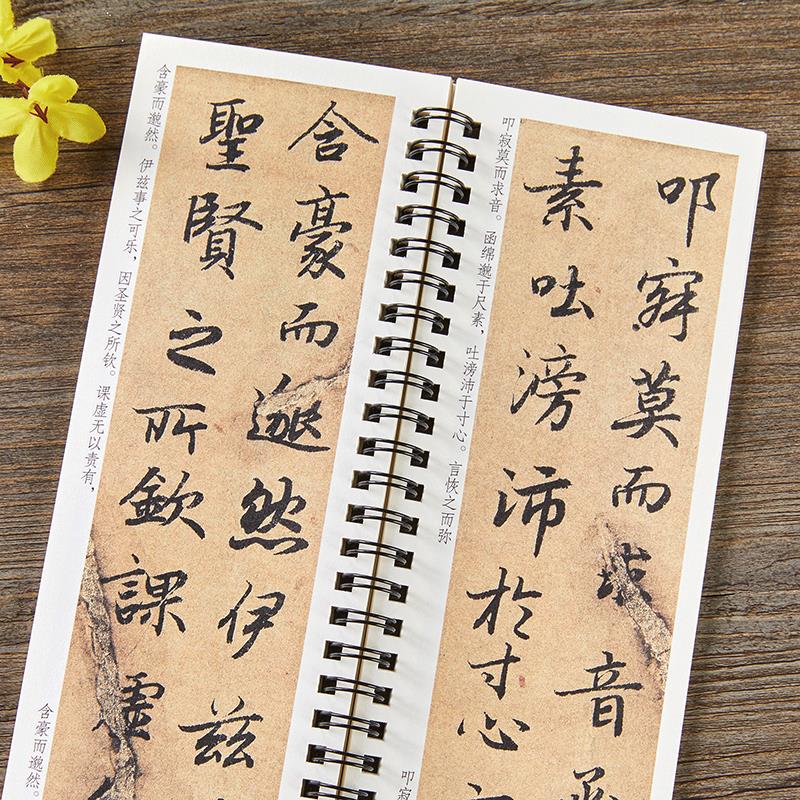 含豪而邈然伊茲
聖賢之所欽課虛
含豪而邈然。伊兹事之可乐,因圣贤之所钦。课虚无以责有,
含豪而邈然。
叩寂莫而求音函
素吐滂沛於寸心
叩寂莫而求音。函绵邈于尺素,吐滂沛于寸心。言恢之而弥
叩寂